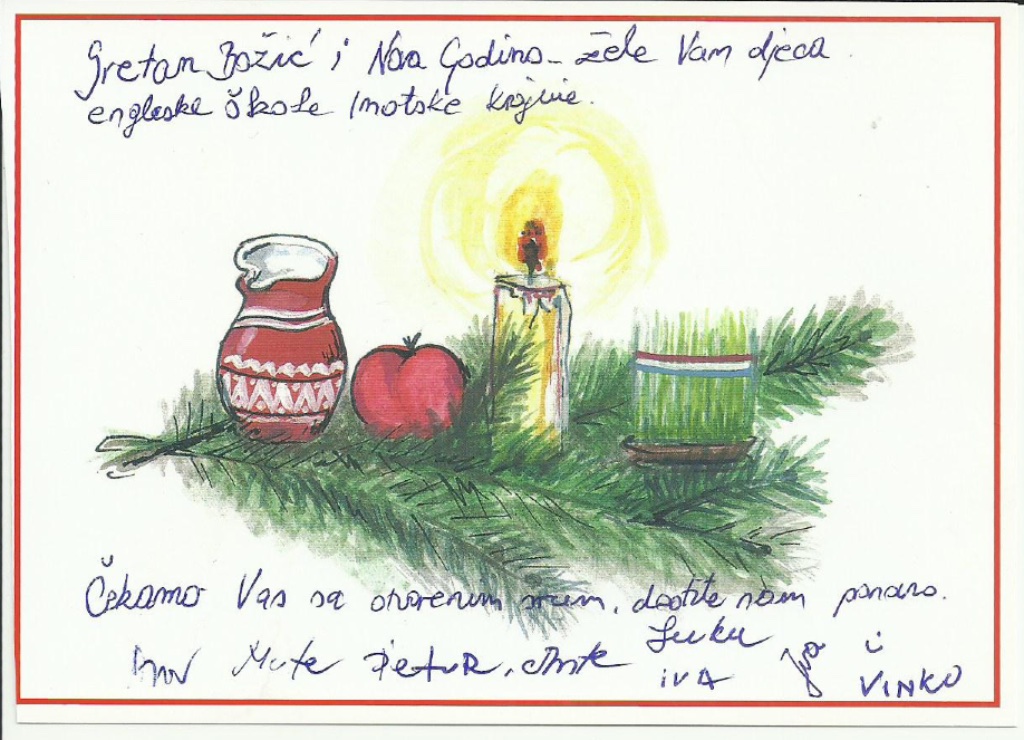 Sretan Božić i Nova Godina - žele Vam djeca
engleske škole Imotske krajine.
Čekamo Vas sa otvorenim srcem, dođite nam ponovo.
Mate Petar, Ante Luka
IVA i
VINKO